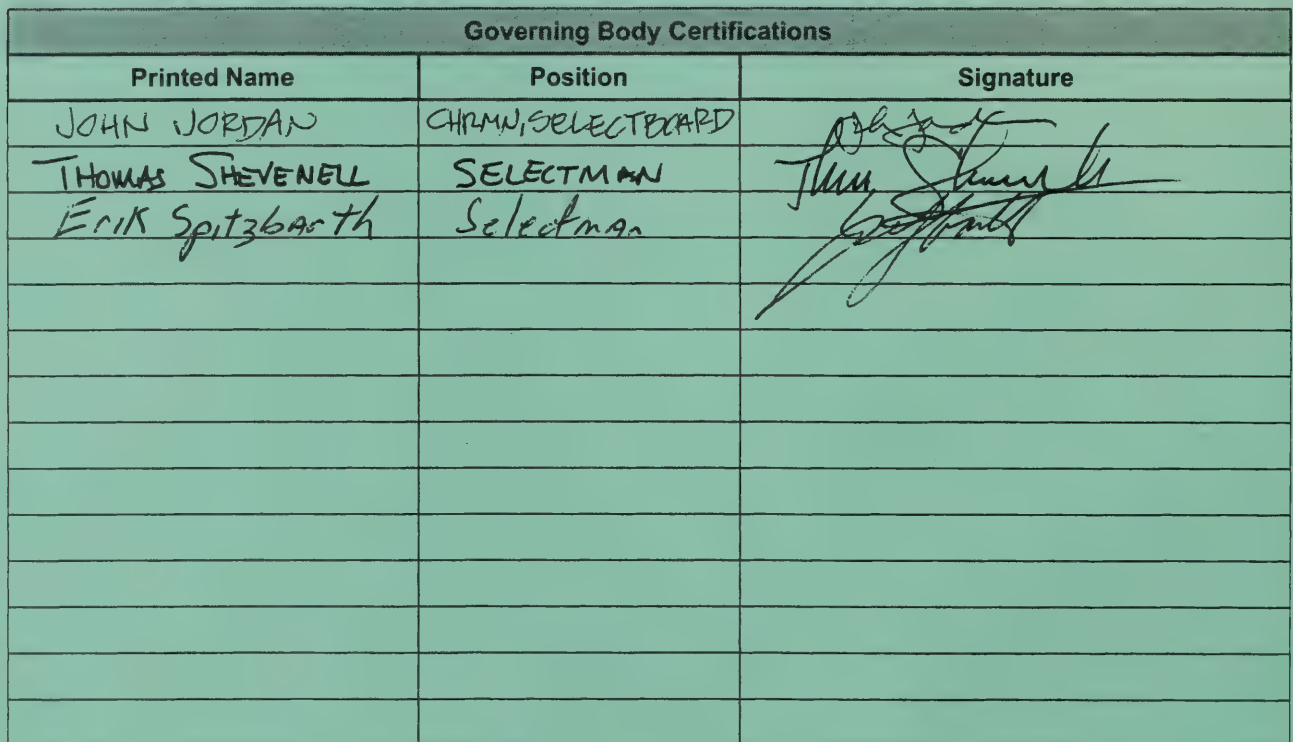 Governing Body Certifications
Printed Name Position Signature
JOHN JORDAN CHRMN, SELECTBOARD
THOMAS SHEVENELL SELECTMAN
Erik Spitzbarth Selectman